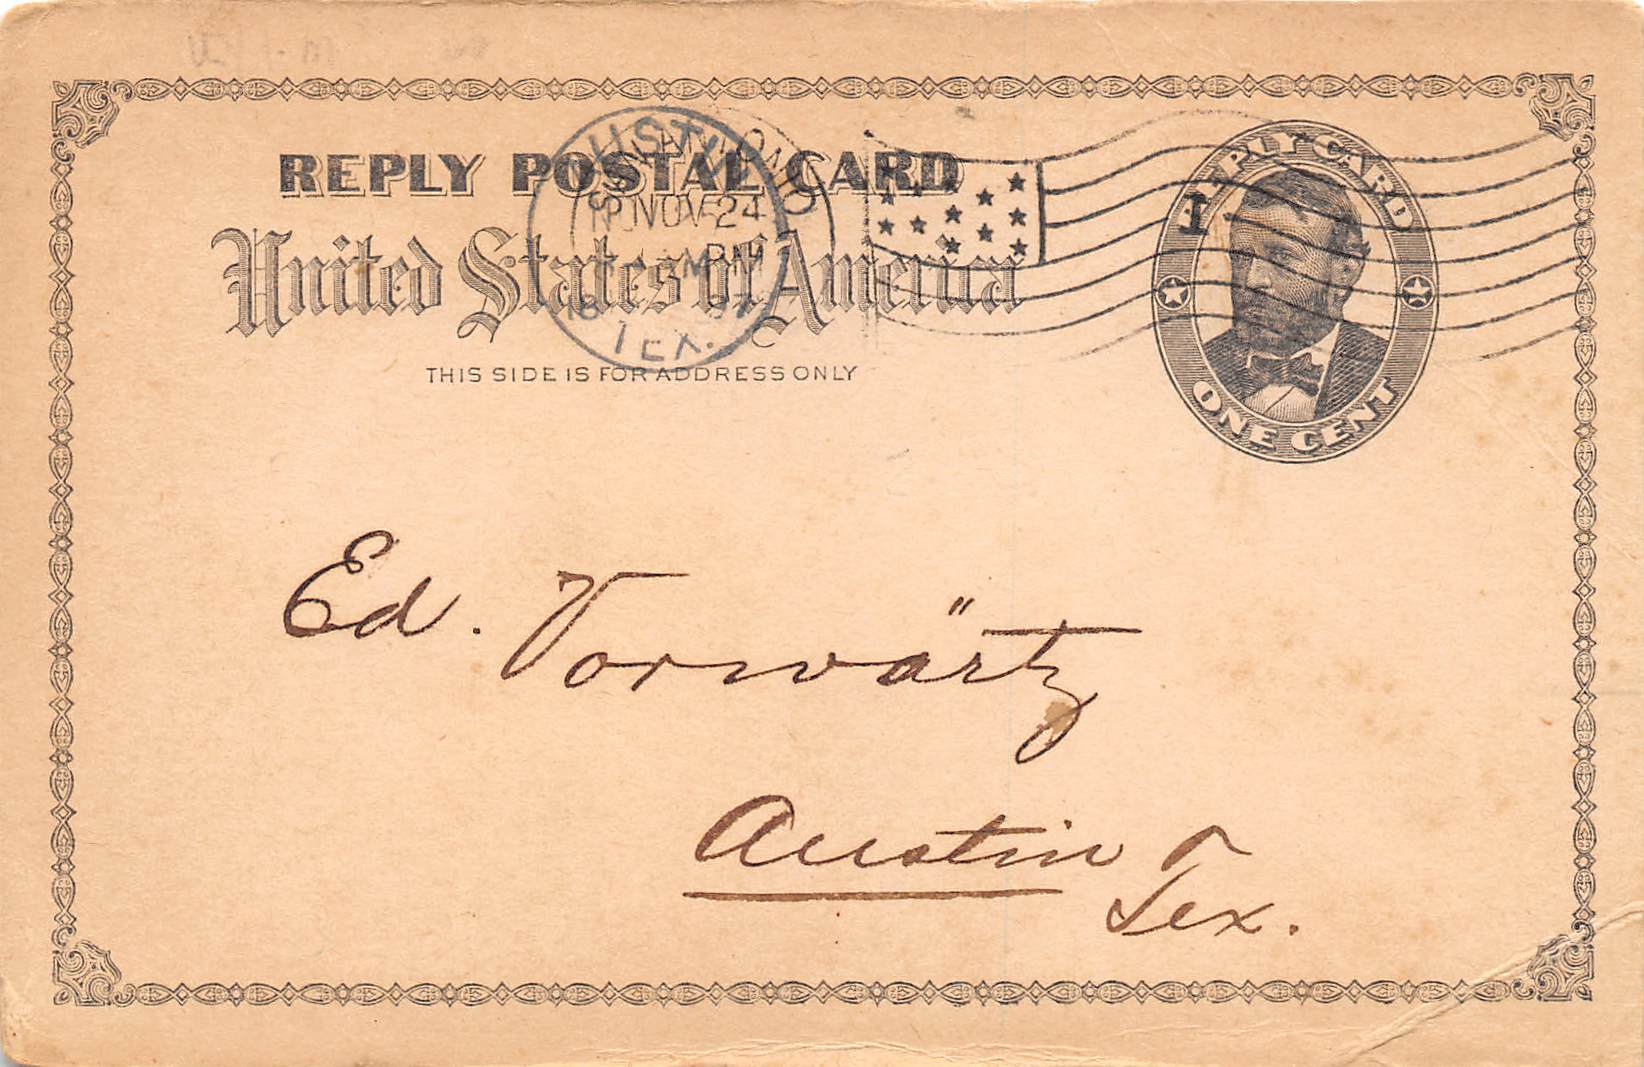 REPLY POSTAL CARD
United States of America
THIS SIDE IS FOR ADDRESS ONLY
AUSTIN
TEX.
SAN ANTONIO
NOV 24
97
REPLY CARD
1
ONE CENT
Ed. Vorwärtz
Austin
Tex.